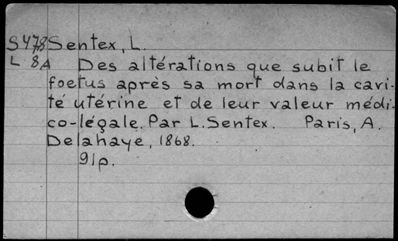 S478 Sentex, L.
L 8A Des altérations que subit le
foetus après sa mort dans la cavi-
té utérine et de leur valeur médi-
co-légale. Par L. Sentex. Paris, A.
Delahaye, 1868.
91p.